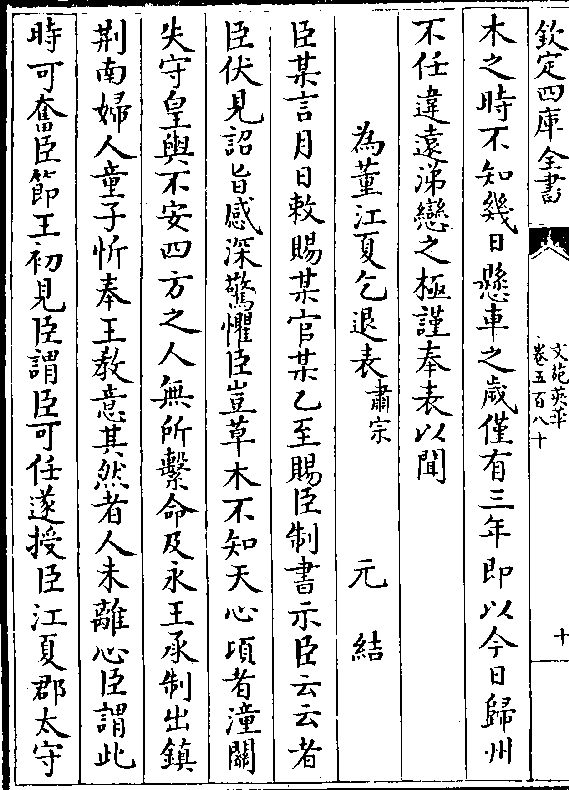 欽定四庫全書
文苑英華
卷五百八十
十
木之時不知幾日懸車之歲僅有三年即以今日歸州
不任違遠涕戀之極謹奉表以聞
為董江夏乞退表肅宗 元結
臣某言月日敕賜某官某乙至賜臣制書示臣云云者
臣伏見詔旨感深驚懼臣豈草木不知天心頃者潼關
失守皇輿不安四方之人無所繫命及永王承制出鎮
荆南婦人童子忻奉王教意其然者人未離心臣謂此
時可奮臣節王初見臣謂臣可任遂授臣江夏郡太守